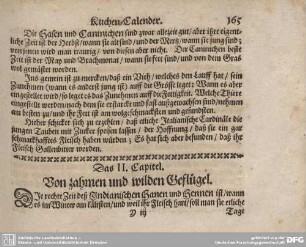 Kuchen/Calender. 165
Die Hasen und Caninichen sind zwar allezeit gut/aber ihre eigent-
liche Zeit ist der Herbst/wann sie alt sind/und der Mertz/wann sie jung sind;
von jenen wird man traurig/von diesen aber nicht. Der Caninchen beste
Zeit ist der May und Brachmonat/wann sie fett sind/und von dem Gras
wol gemästet worden.
Ins gemein ist zu mercken/daß ein Vieh/welches den Lauff hat/sein
Zunehmen (wann es anderst sich zu ergehn ist) auf die Grösse leget: Wann es aber
eingestellet wird/so leget es das Zunehmen auf die Fettigkeit. Welche Thiere
eingestellt werden/nach dem sie erstarckt und fast ausgewachsen sind/nehmen
am besten zu/und ihr Fett ist am wolgeschmacksten und gesündsten.
Hieher schicket sich zu erzehlen/daß etliche Italienische Cardinäle die
jungen Tauben mit Zucker speisen lassen/der Hoffnung/daß sie ein gar
schmackhafftes Fleisch haben würden; Es hat sich aber befunden/daß ihr
Fleisch Gallenbitter worden.
Das II. Capitel.
Von zahmen und wilden Geflügel.
Die rechte Zeit deß Indianischen Hanen und Hennen ist/wann
es im Winter am kältesten/und weil ihr Fleisch hart/soll man sie etliche
Y iij Tage